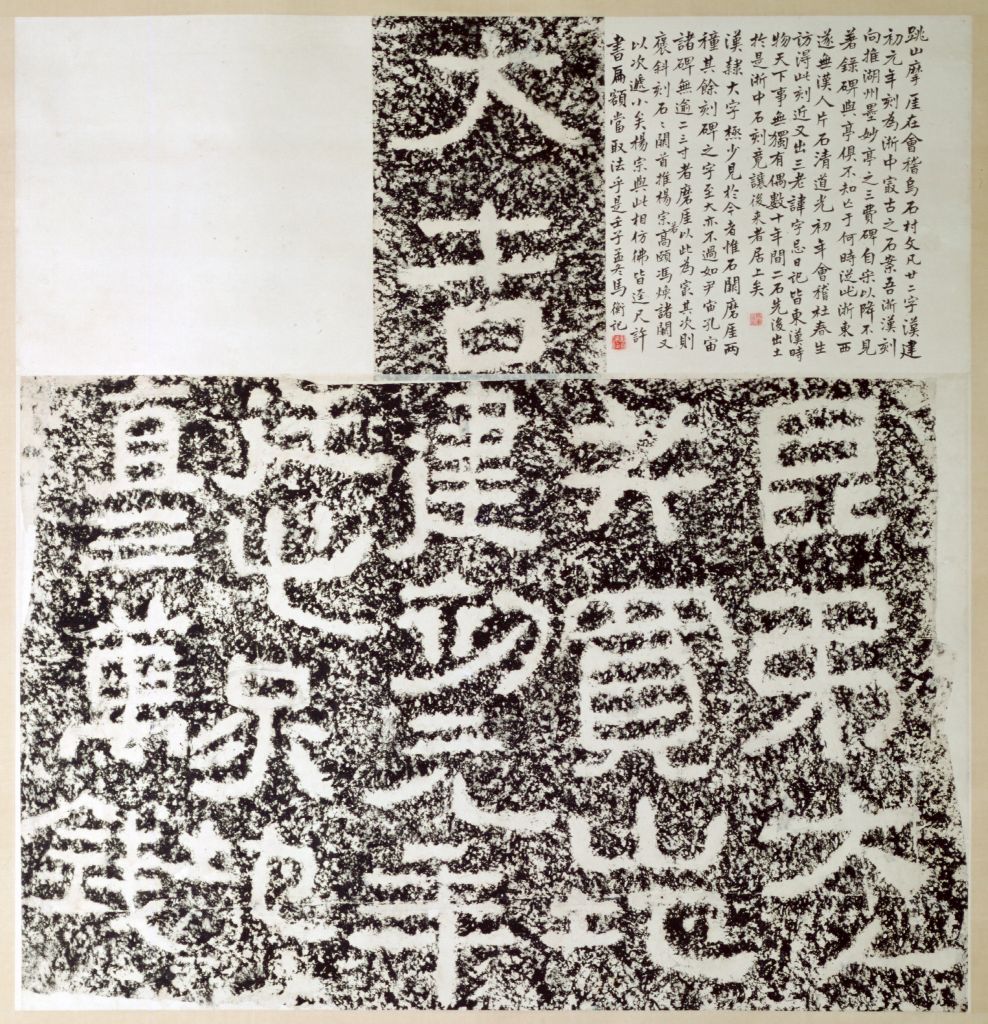 跳山摩厓在會稽烏石村文凡廿二字漢建
初元年刻為浙中冣古之石案吾浙漢刻
向推湖州墨妙亭之三費碑自宋以降不見
著錄碑與亭俱不知亡于何時從此浙東西
遂無漢人片石清道光初年會稽杜春生
訪得此刻近又出三老諱字忌日記皆東漢時
物天下事無獨有偶數十年間二石先後出土
於是浙中石刻竟讓後来者居上矣
漢隸大字極少見於今者惟石闕磨厓兩
種其餘刻碑之字至大亦不過如尹宙孔宙
諸碑無逾二三寸者若磨厓以此為冣其次則
褒斜刻石〻闕首推楊宗高頤馮煥諸闕又
以次遞小矣楊宗與此相仿佛皆逕尺許
書扁額當取法乎是壬子孟冬馬衡記
大吉
昆弟六人
共買山地
建初元年
造此冢地
直三萬錢